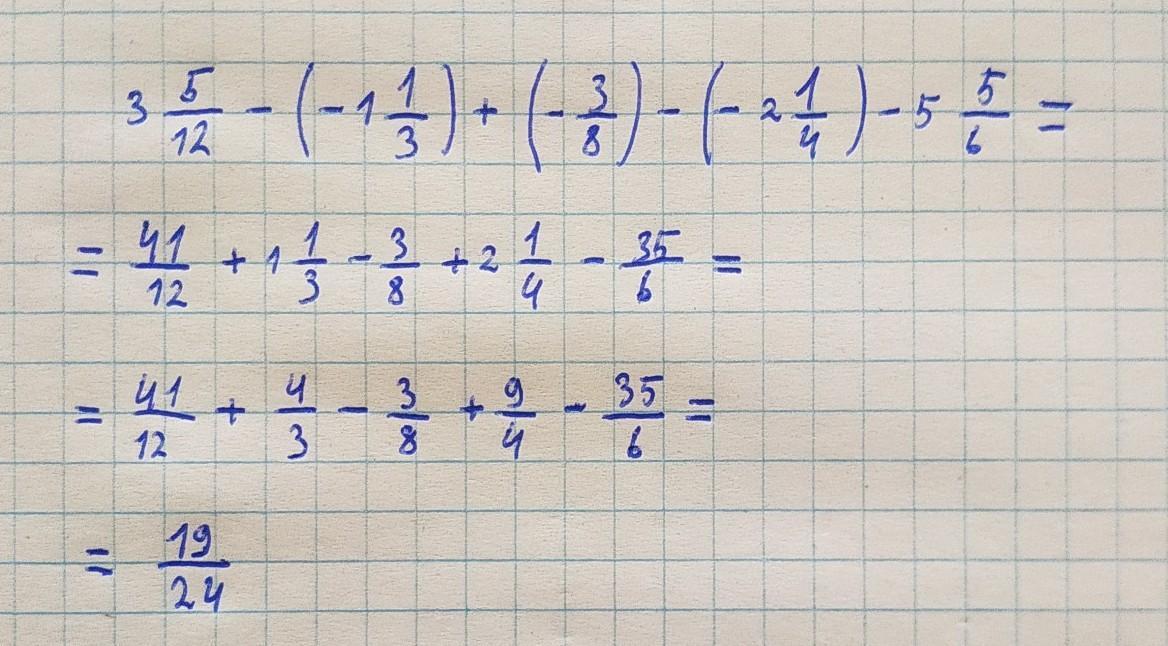 3 5/12 - (-1 1/3) + (-3/8) - (-2 1/4) - 5 5/6 =
= 41/12 + 1 1/3 - 3/8 + 2 1/4 - 35/6 =
= 41/12 + 4/3 - 3/8 + 9/4 - 35/6 =
= 19/24